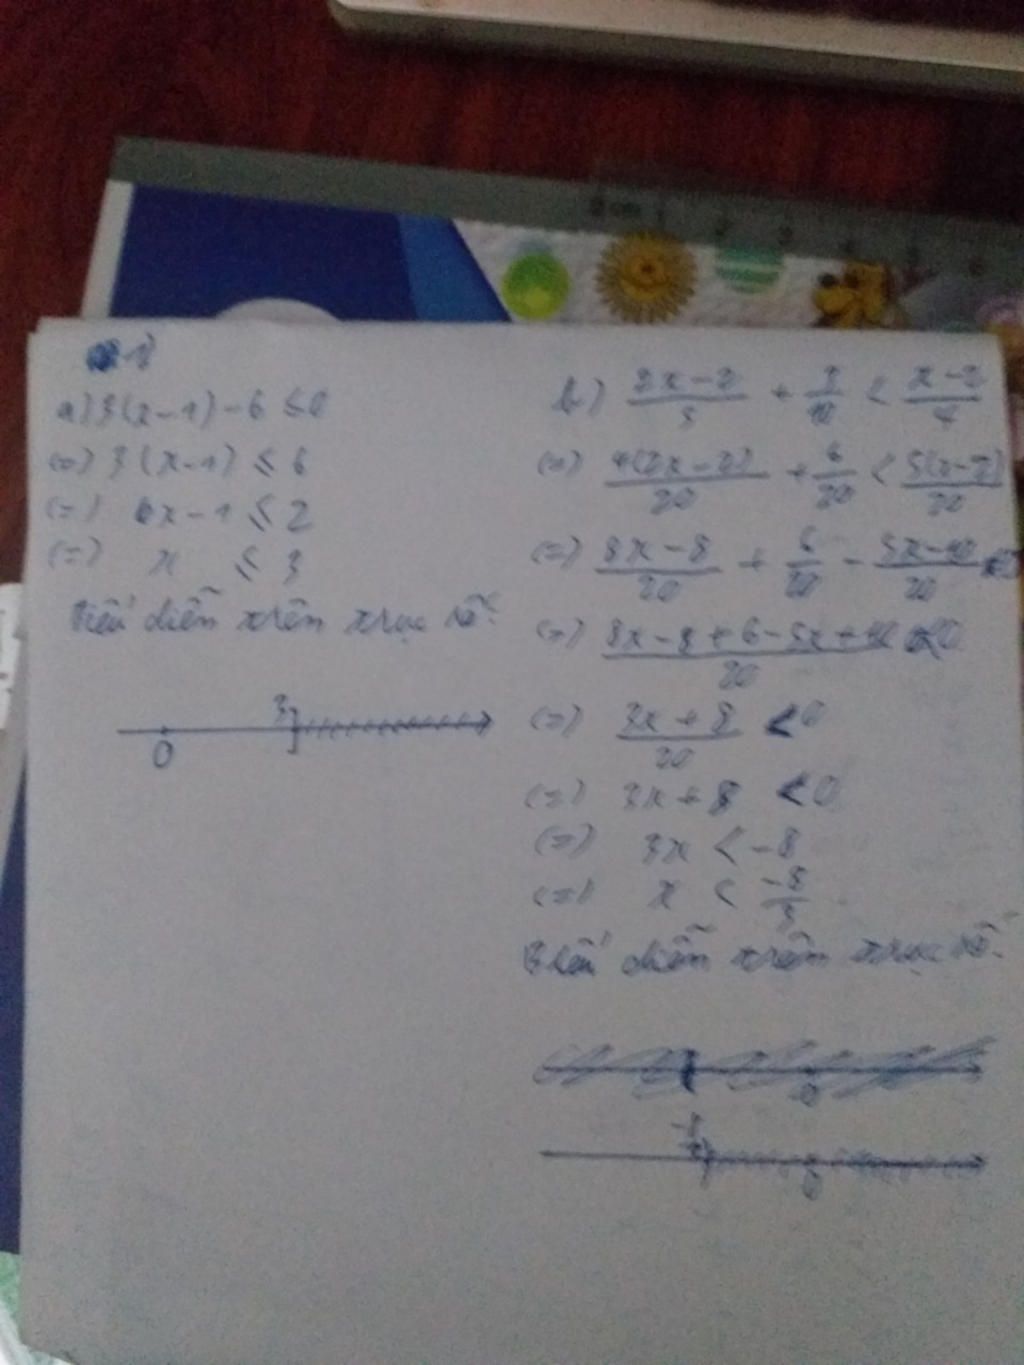 a) 3(x-1)-6 ≤ 0
(=) 3(x-1) ≤ 6
(=) x-1 ≤ 2
(=) x ≤ 3
Biểu diễn trên trục số:
3
0
b) \frac{2x-2}{5} + \frac{3}{10} < \frac{x-2}{4}
(=) \frac{4(2x-2)}{20} + \frac{6}{20} < \frac{5(x-2)}{20}
(=) \frac{8x-8}{20} + \frac{6}{20} - \frac{5x-10}{20} < 0
(=) \frac{8x-8+6-5x+10}{20} < 0
(=) \frac{3x+8}{20} < 0
(=) 3x+8 < 0
(=) 3x < -8
(=) x < \frac{-8}{3}
Biểu diễn trên trục số:
0